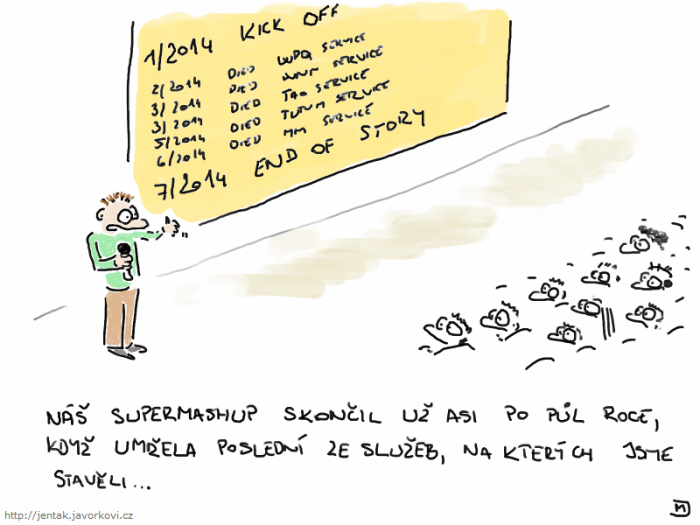 1/2014 KICK OFF
2/2014 DIED SERVICE
3/2014 DIED SERVICE
3/2014 DIED TAG SERVICE
5/2014 DIED SERVICE
6/2014 DIED MM SERVICE
7/2014 END OF STORY
NÁŠ SUPERMASHUP SKONČIL UŽ ASI PO PŮL ROCE,
KDYŽ UMŘELA POSLEDNÍ ZE SLUŽEB, NA KTERÝCH JSME
STAVĚLI...
http://jentak.javorkovi.cz